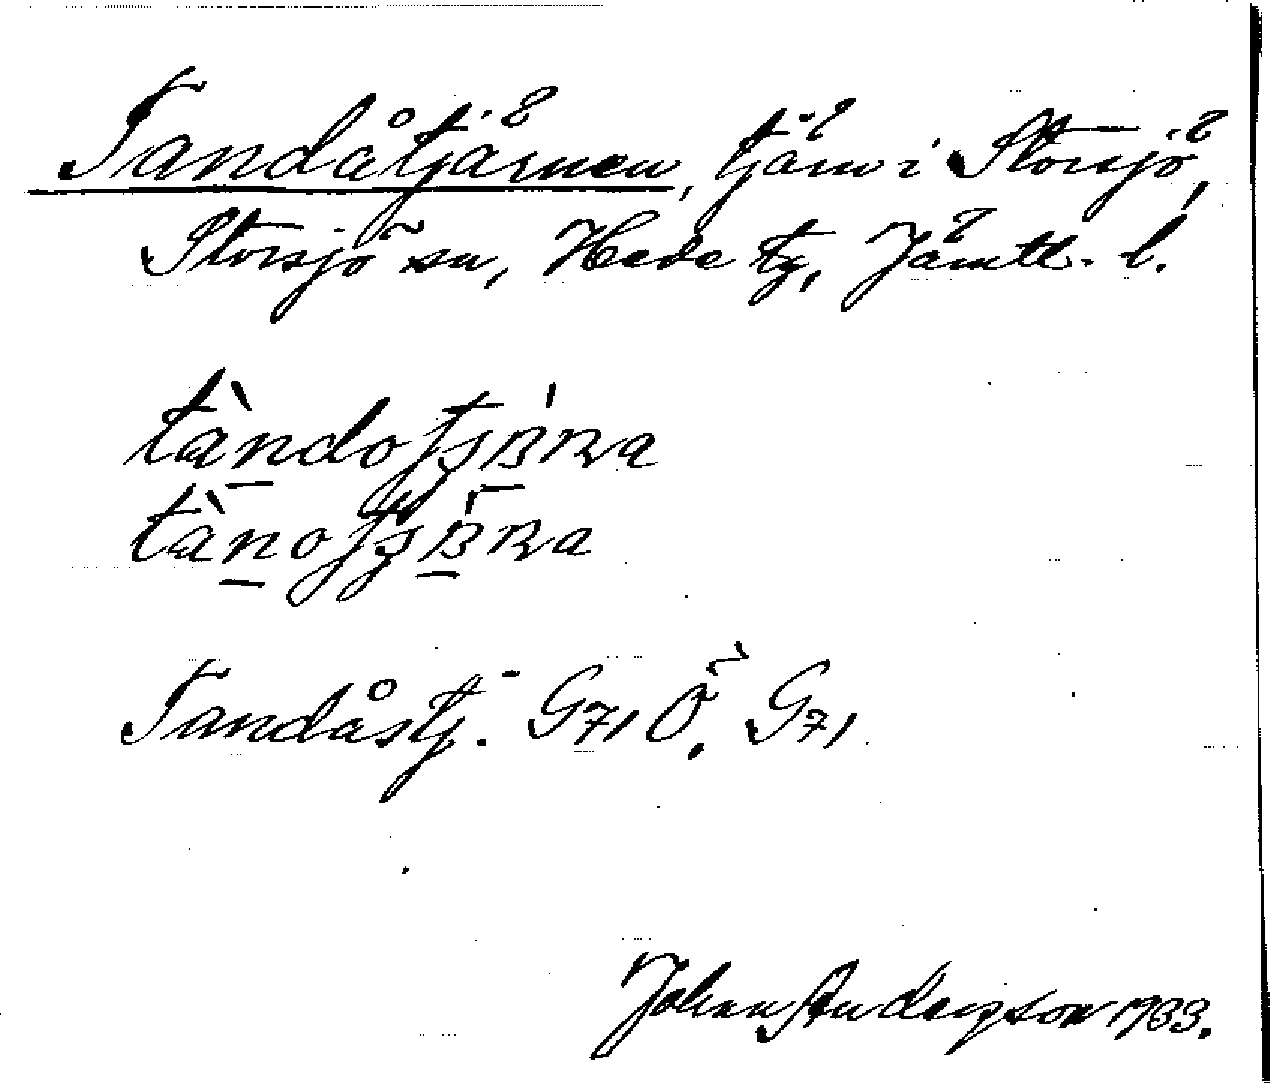 Tandåtjärnen, tjärn i Storsjö,
Storsjö sn, Hede tg, Jämtl. l.
Tandåstj. G71 Ö. G71
Johan Andersson 1933.